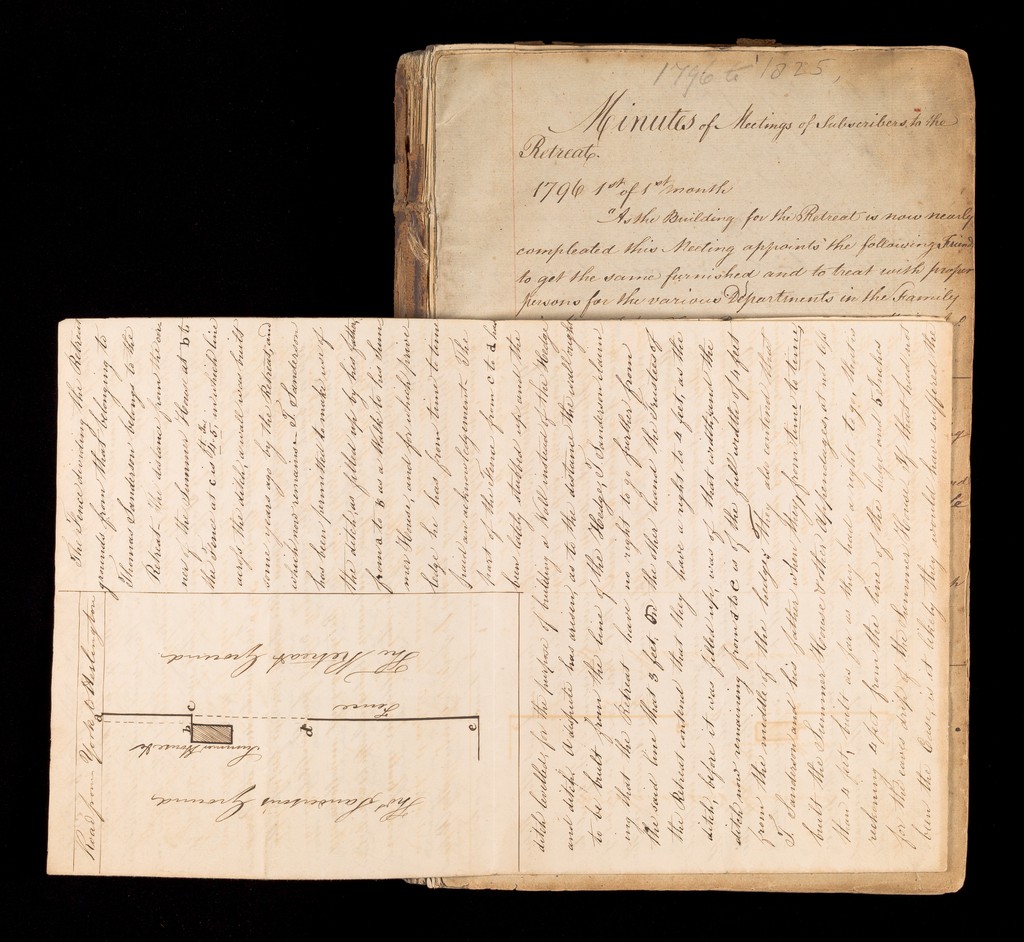 1796 to 1825,
Minutes of Meetings of Subscribers, to the
Retreat.
1796 1st of 1st month
"As the Building for the Retreat is now nearly
compleated this Meeting appoints the following Friend
to get the same furnished and to treat with proper
persons for the various Departments in the Family
The Fence dividing the Retreat
grounds from that belonging to
Thomas Sanderson belongs to the
Retreat. The distance from the cor
ner of the Summer House at b to
the Fence at c is 4 Ft. 5 In. in which line
across the ditch, a wall was built
some years ago by the Retreat, and
which now remains. T Sanderson
has been permitted to make use of
the ditch, as filled up by his father,
from a to b as a Walk to his Sum
mer House, and for which privi
ledge he has from time to time
paid an acknowledgement. The
part of the Fence from c to d has
been lately stubbed up, and the
ditch levelled, for the purpose of building a Wall instead of the Hedge
and ditch. A dispute has arisen, as to the distance the wall ought
to be built from the line of the Hedge; T Sanderson claim
ing that the Retreat have no right to go farther from
the said line than 3 feet, On the other hand the Trustees of
the Retreat contend that they have a right to 4 feet, as the
ditch, before it was filled up, was of that width, and the
ditch now remaining from d to e is of the full width of 4 feet
from the middle of the hedge; They also contend that
T. Sanderson and his father when they from time to time
built the Summer House & other Appendages, at not less
than 4 feet, built as far as they had a right to go, this
reckoning 4 feet from the line of the hedge and 5 Inches
for the eaves drop of the Summer House. If that had not
been the Case, is it likely they would have suffered the
Road from York to Heslington
The Retreat Ground
Fence
a
b
c
d
e
Summer House &c
Thos Sanderson's Ground